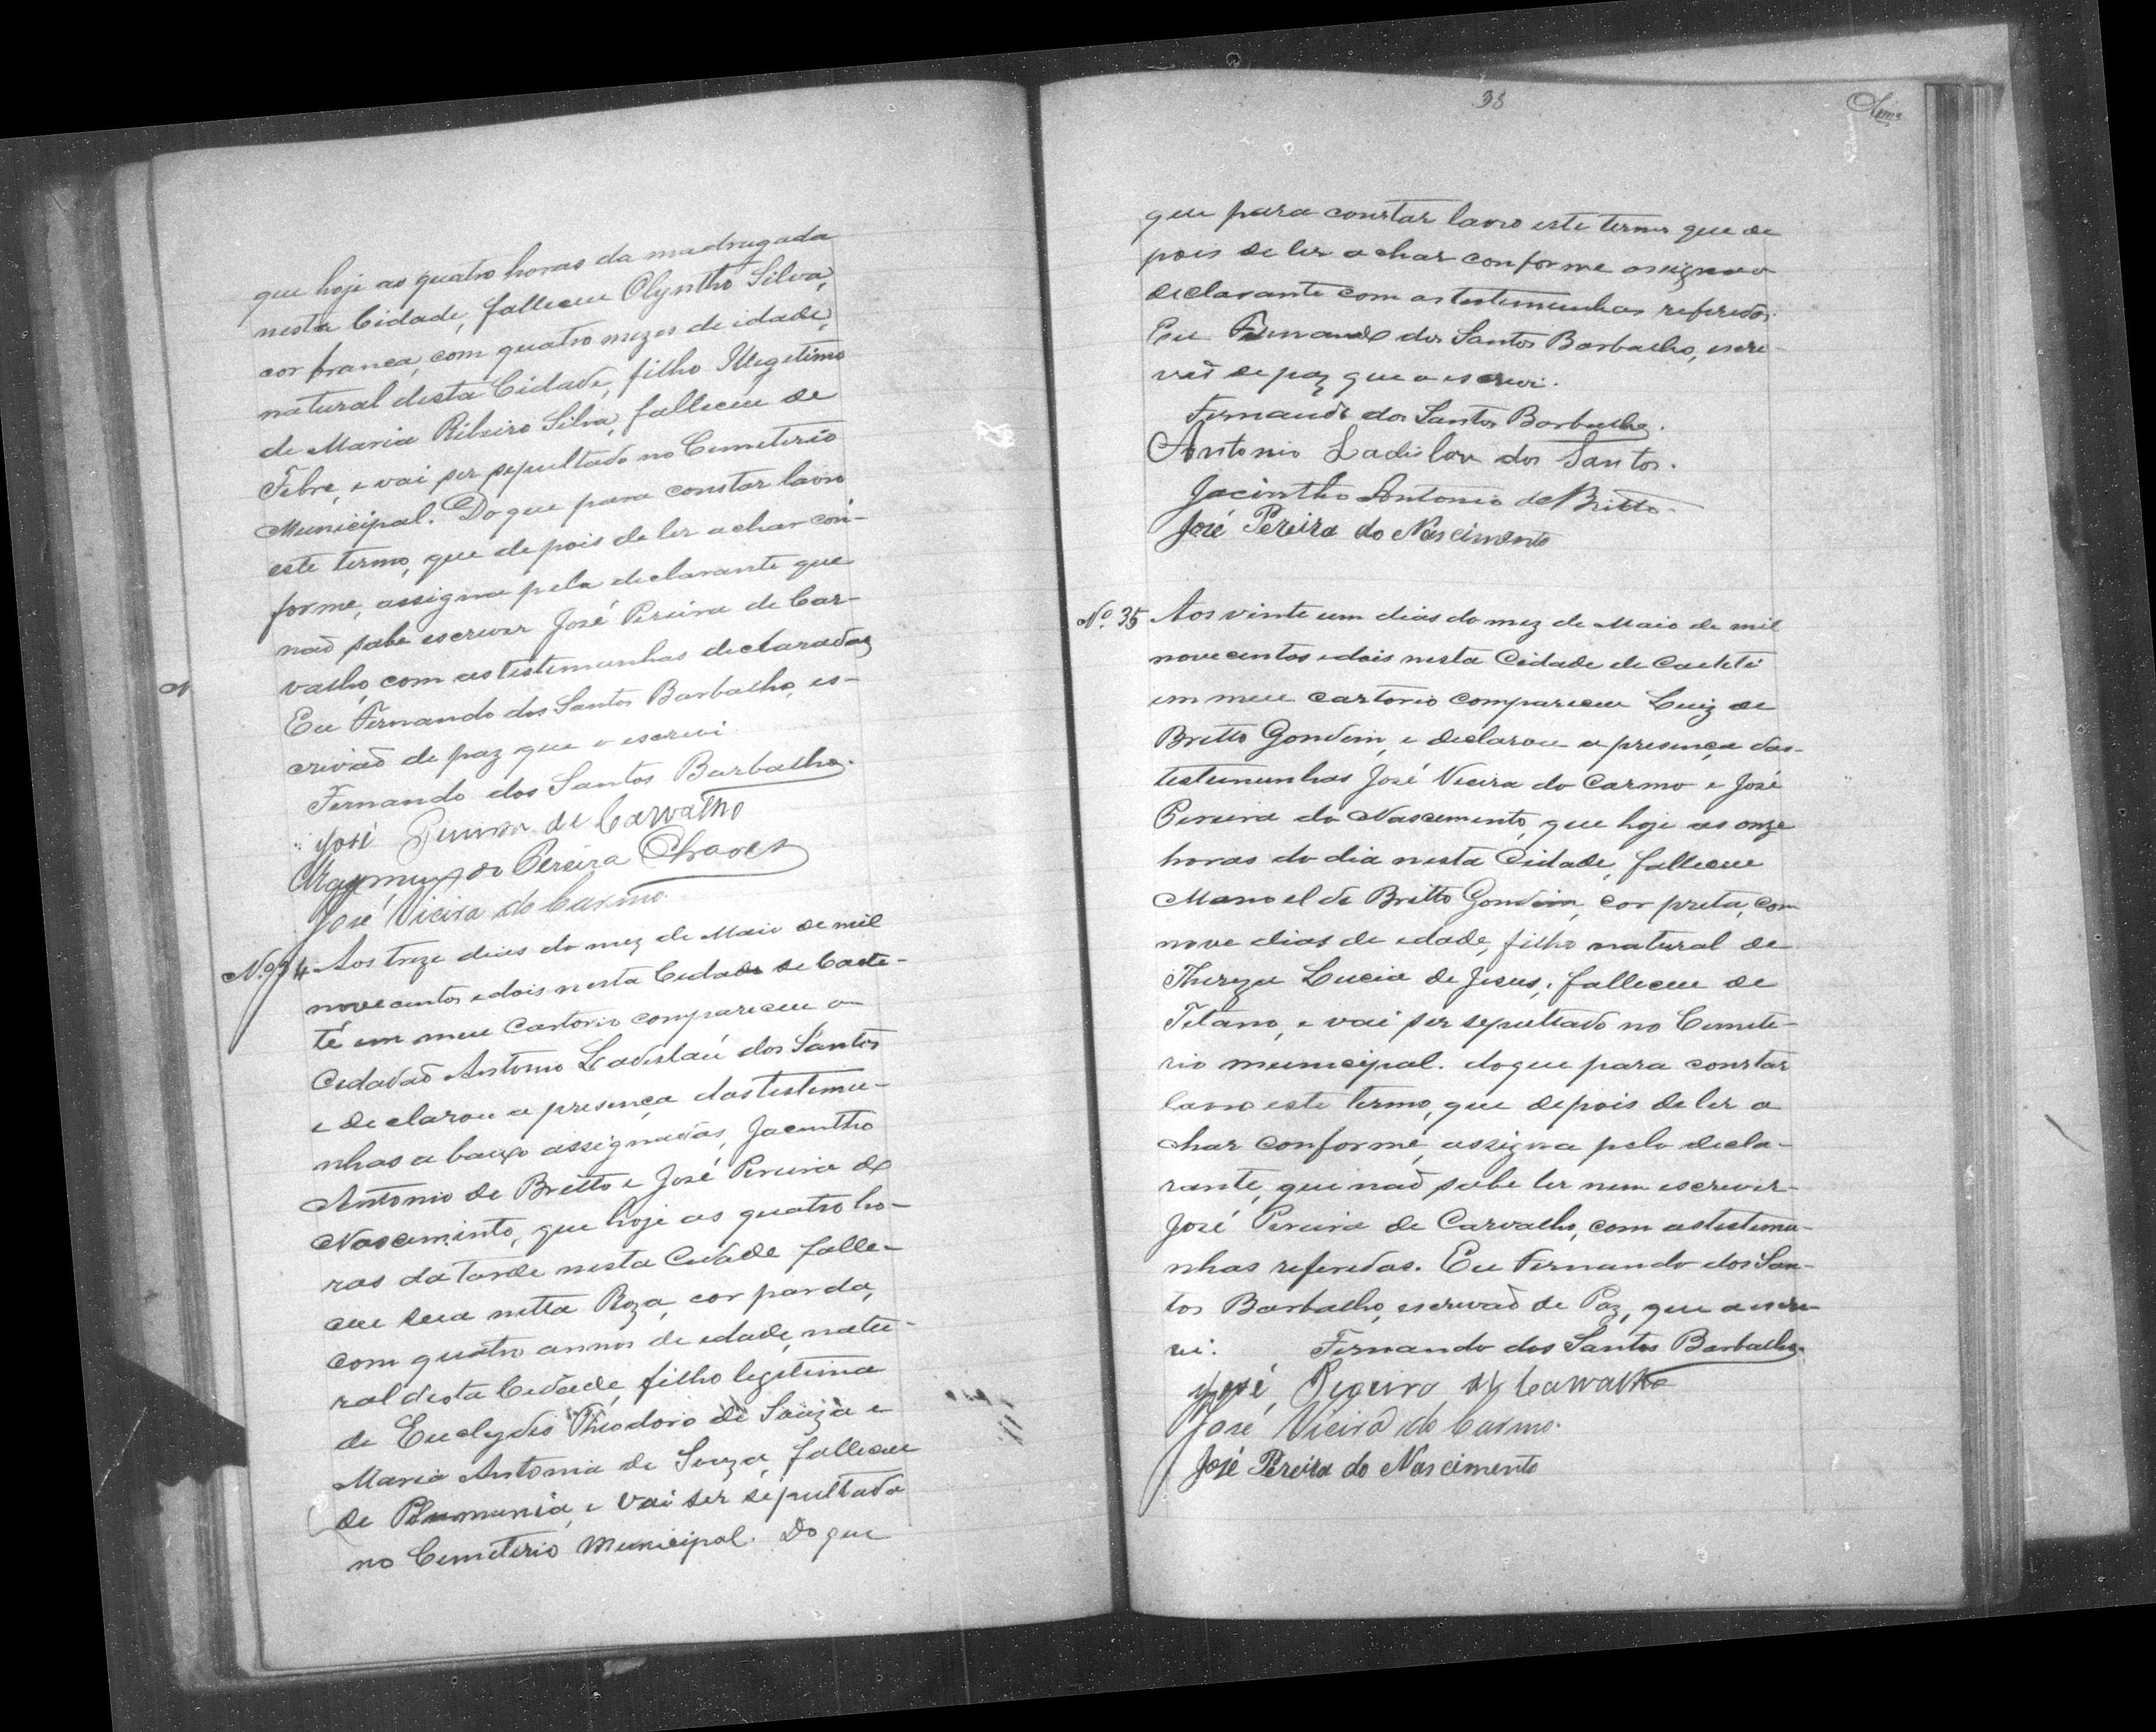 que hoje as quatro horas da madrugada
nesta Cidade, falleceu Olyntho Silva,
cor branca, com quatro mezes de idade,
natural desta Cidade, filho Illegetimo
de Maria Ribeiro Silva, falleceu de
Febre, e vai ser sepultado no Cemeterio
Municipal. Do que para constar lavro
este termo, que depois de ler achar con-
forme, assigna pela declarante que
naõ sabe escrever José Pereira de Car-
valho, com as testemunhas declaradas
Eu Fernando dos Santos Barbalho, es-
crivaõ de paz que o escrevi.
Fernando dos Santos Barbalho.
José Pereira de Carvalho
Raymundo Pereira Chaves
José Vieira do Carmo.
Nº 34 Aos treze dias do mez de Maio de mil
novecentos e dois nesta Cidade de Caete-
té em meu Cartorio compareceu o
Cidadaõ Antonio Ladislaú dos Santos
e declarou a presença das testemu-
nhas a baixo assignadas, Jacintho
Antonio de Britto e José Pereira do
Nascimento, que hoje as quatro ho-
ras da tarde nesta Cidade falle-
ceu sua netta Roza, cor parda,
com quatro annos de edade, natu-
ral desta Cidade, filho legitima
de Euclydis Theodoro de Souza e
Maria Antonia de Souza, falleceu
de e vai ser sepultado
no Cemeterio Municipal. Do que
38
que para constar lavro este termo que de
pois de ler achar conforme assigna o
declarante com as testemunhas referidas.
Eu Fernando dos Santos Barbalho, escri-
vaõ de paz que o escrevi.
Fernando dos Santos Barbalho.
Antonio Ladislau dos Santos.
Jacintho Antonio de Britto.
José Pereira do Nascimento
Nº 35 Aos vinte um dias do mez de Maio de mil
novecentos e dois nesta Cidade de Caeteté
em meu cartorio compareceu Luiz de
Britto Gondim, e declarou a presença das
testemunhas José Vieira do Carmo e José
Pereira do Nascemento, que hoje as onze
horas do dia nesta Cidade, falleceu
Manoel de Britto Gondim, cor preta, com
nove dias de edade, filho natural de
Thereza Lucia de Jesus, falleceu de
Tetano, e vai ser sepultado no Cemete-
rio municipal. do que para constar
lavro este termo, que depois de ler a
char conforme, assigna pelo decla-
rante, que naõ sabe ler nem escrever
José Pereira de Carvalho, com as testemu-
nhas referidas. Eu Fernando dos San-
tos Barbalho, escrivaõ de Paz, que o escre-
vi. Fernando dos Santos Barbalho.
José Pereira de Carvalho
José Vieira do Carmo.
José Pereira do Nascimento